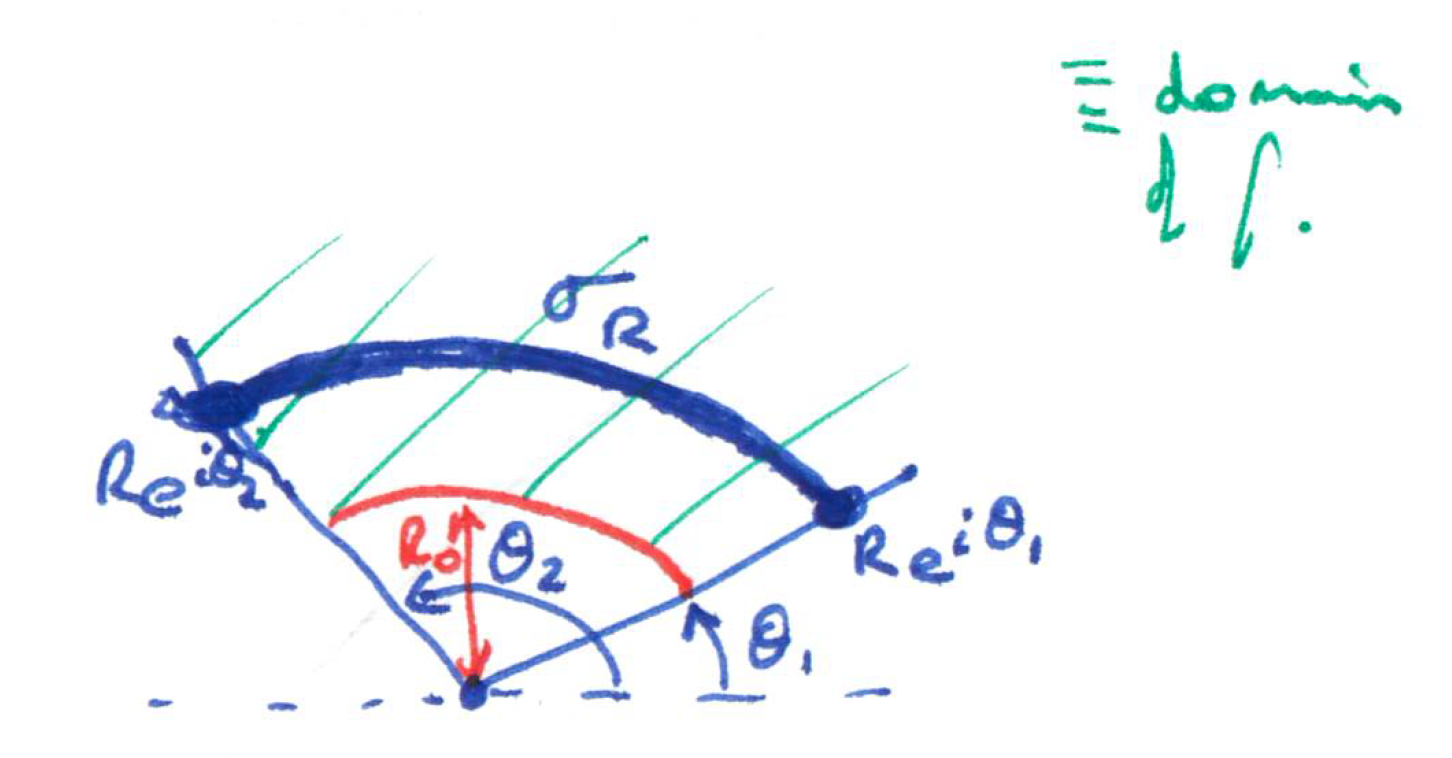 ≡ domain
of f.
σ_R
Re^{iθ_2}
R_0
θ_2
Re^{iθ_1}
θ_1